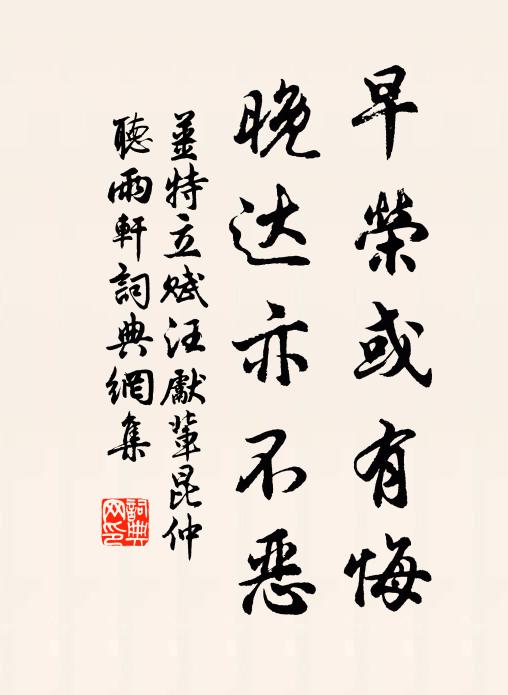 早榮或有悔
晚达亦不恶
姜特立赋汪獻輩昆仲
聽雨軒詞典網集
詞典网印